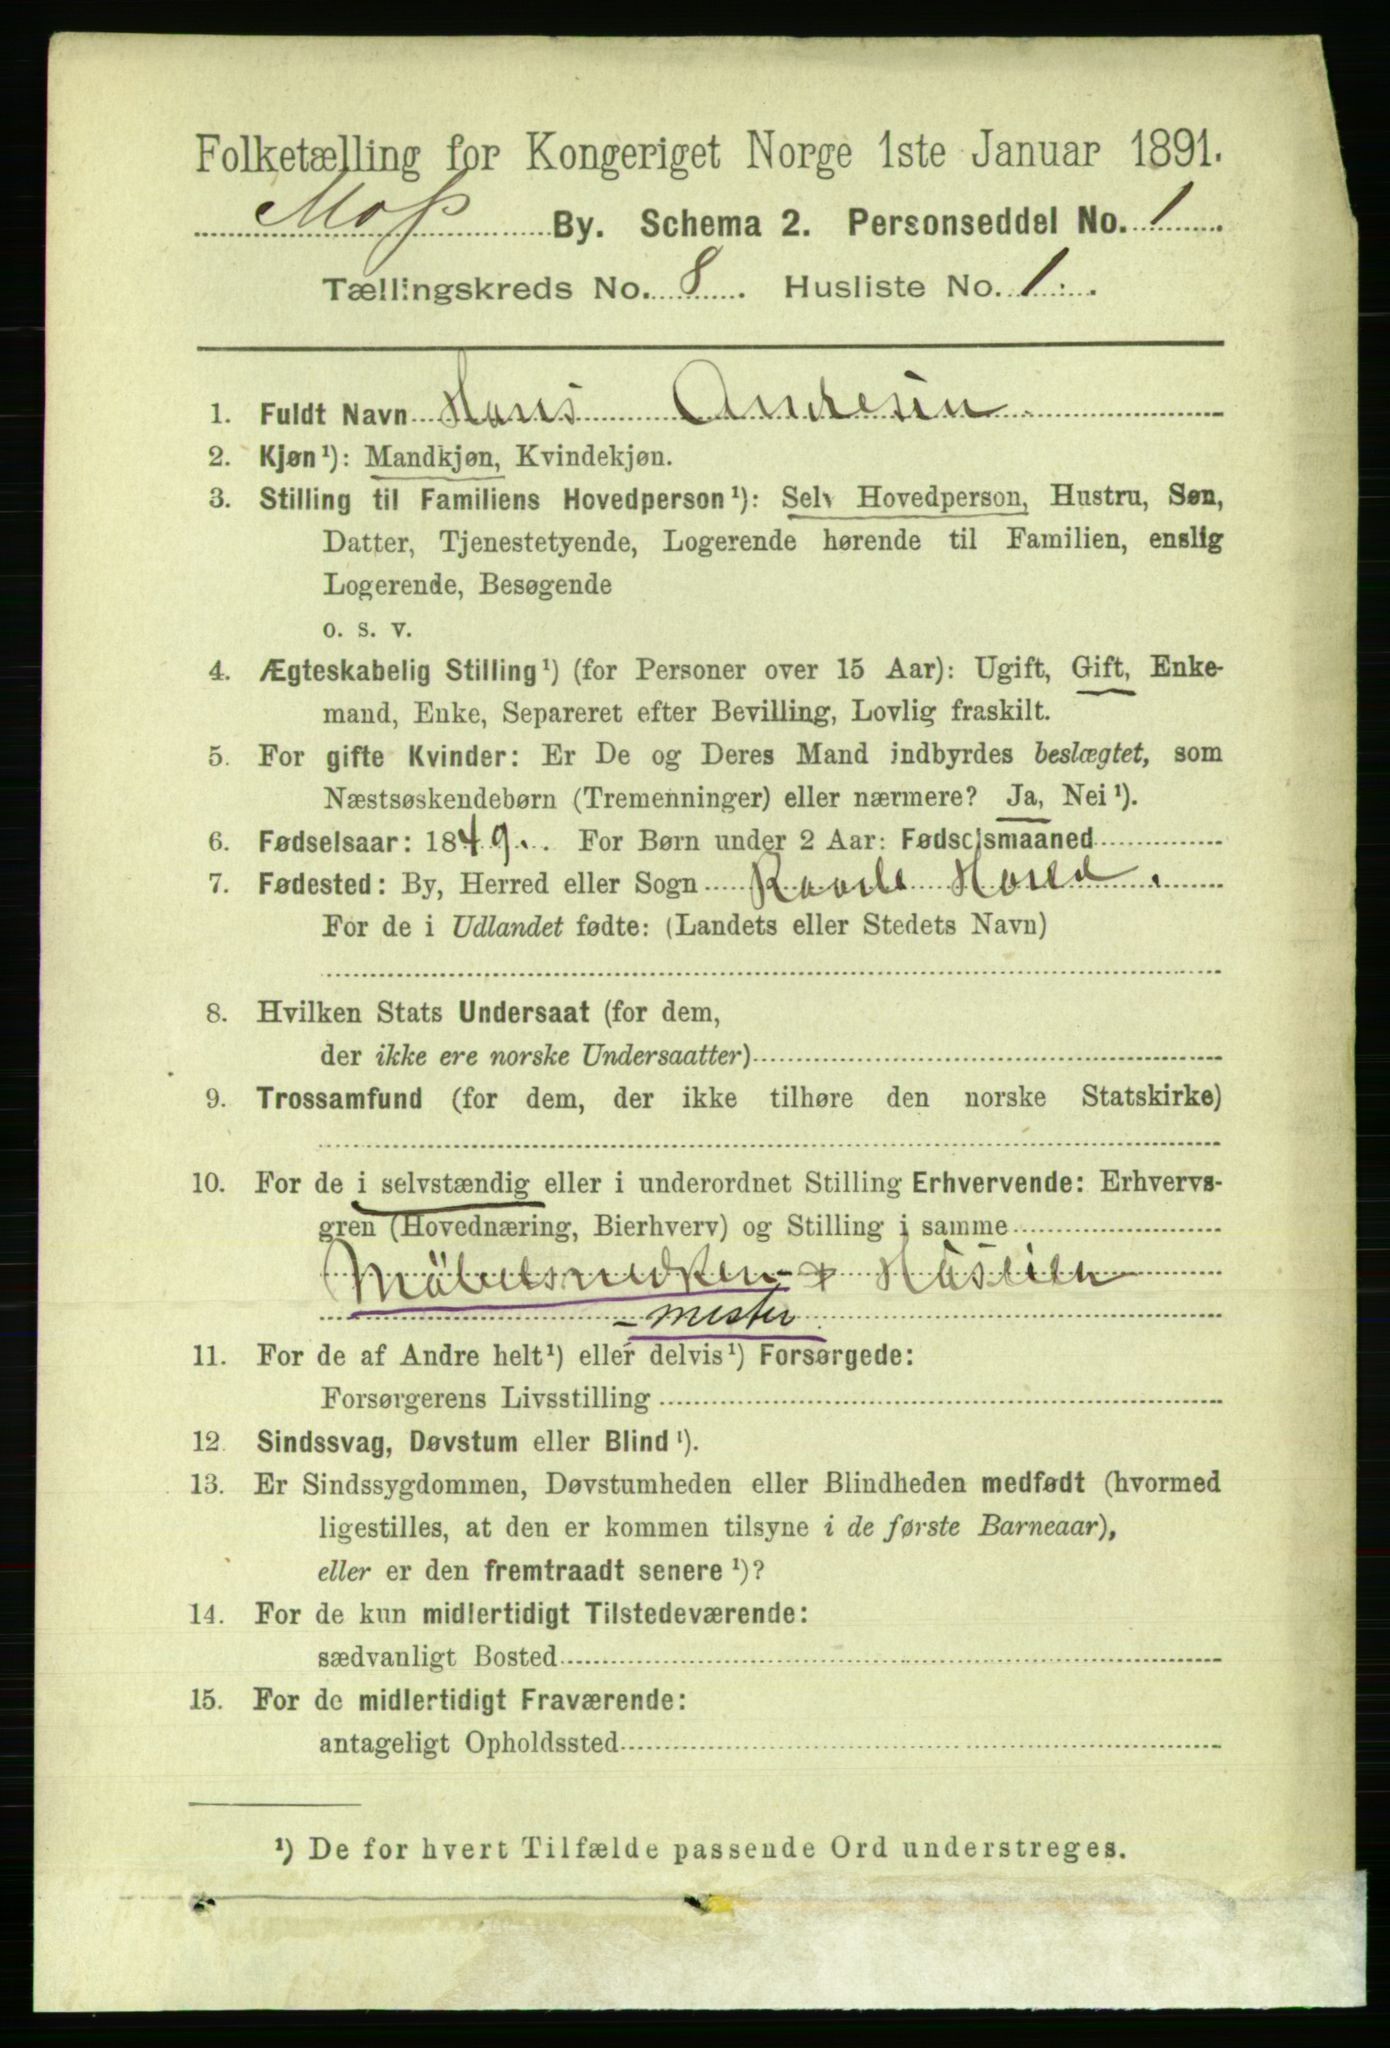 Folketælling for Kongeriget Norge 1ste Januar 1891.
Moss By. Schema 2. Personseddel No. 1
Tællingskreds No. 8. Husliste No. 1.
1. Fuldt Navn Hans Andresen
2. Kjøn¹): Mandkjøn, Kvindekjøn.
3. Stilling til Familiens Hovedperson¹): Selv Hovedperson, Hustru, Søn,
Datter, Tjenestetyende, Logerende hørende til Familien, enslig
Logerende, Besøgende
o. s. v.
4. Ægteskabelig Stilling¹) (for Personer over 15 Aar): Ugift, Gift, Enke-
mand, Enke, Separeret efter Bevilling, Lovlig fraskilt.
5. For gifte Kvinder: Er De og Deres Mand indbyrdes beslægtet, som
Næstsøskendebørn (Tremenninger) eller nærmere? Ja, Nei¹).
6. Fødselsaar: 1849. For Børn under 2 Aar: Fødselsmaaned
7. Fødested: By, Herred eller Sogn Raade
For de i Udlandet fødte: (Landets eller Stedets Navn)
8. Hvilken Stats Undersaat (for dem,
der ikke ere norske Undersaatter)
9. Trossamfund (for dem, der ikke tilhøre den norske Statskirke)
10. For de i selvstændig eller i underordnet Stilling Erhvervende: Erhvervs-
gren (Hovednæring, Bierhverv) og Stilling i samme
Möbelsnedker-
-mester
11. For de af Andre helt¹) eller delvis¹) Forsørgede:
Forsørgerens Livsstilling
12. Sindssvag, Døvstum eller Blind¹).
13. Er Sindssygdommen, Døvstumheden eller Blindheden medfødt (hvormed
ligestilles, at den er kommen tilsyne i de første Barneaar),
eller er den fremtraadt senere¹)?
14. For de kun midlertidigt Tilstedeværende:
sædvanligt Bosted
15. For de midlertidigt Fraværende:
antageligt Opholdssted
¹) De for hvert Tilfælde passende Ord understreges.